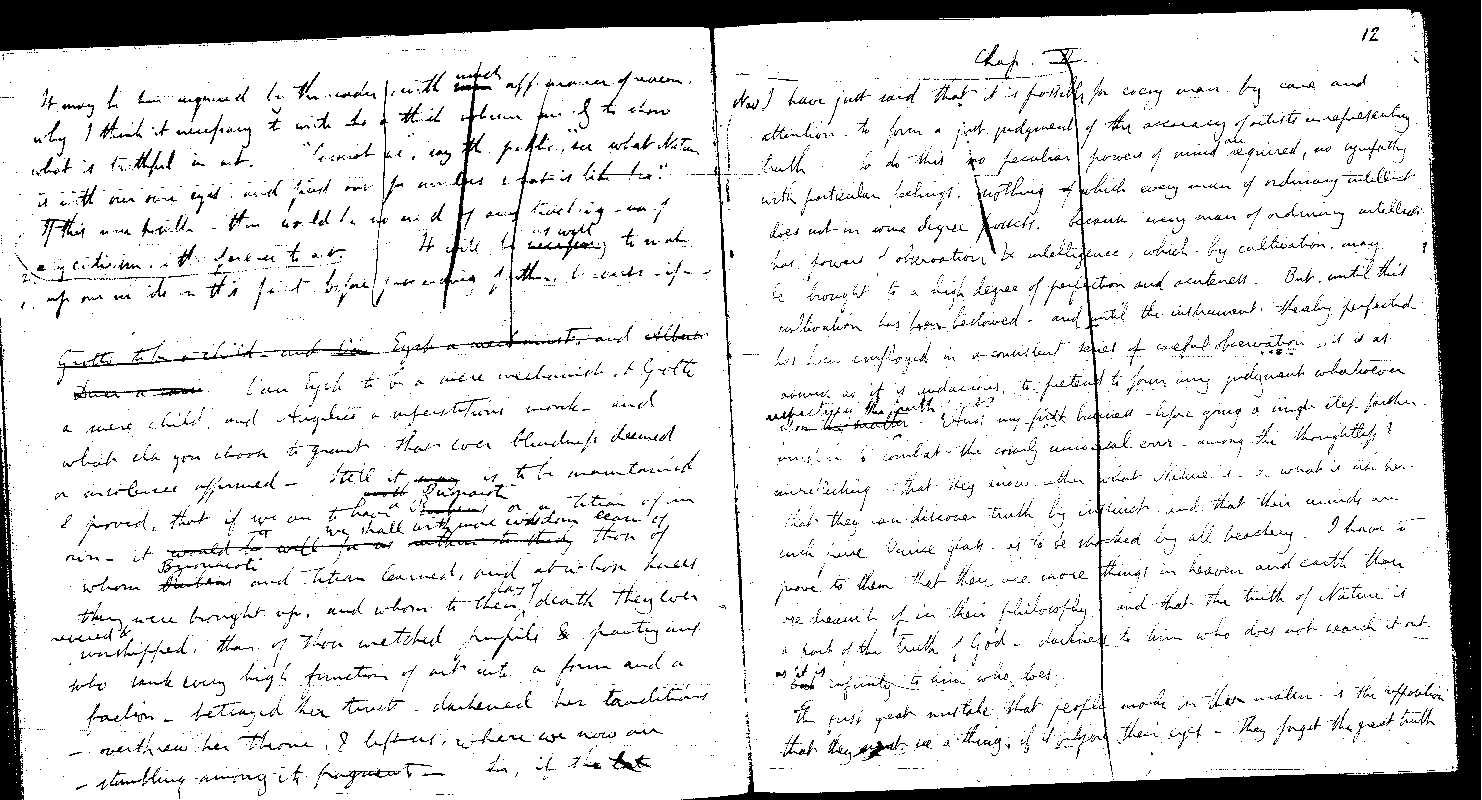 It may be here inquired by the reader, with much appearance of reason.
why I think it necessary to write to a third volume &c to show
what is truthful in art. "Cannot we," say the public, "see what Nature
is with our own eyes, and find out for ourselves what is like her?"
If this were possible - there would be no end of any teaching - or of
any criticism, with reference to art. It will be as well necessary to make
up our minds on this point before proceeding farther, because - if -
Giotto to be a child - and Van Eyck a mechanist, and Albert
Durer a man Van Eyck to be a mere mechanist, & Giotto
a mere child, and Angelico a superstitious monk - and
whatever else you choose to grant that ever blindness deemed
or insolence affirmed - Still it may is to be maintained
& proved, that if we are to have a Buonaroti or a Titian of our
own - it would be well for us we shall with more wisdom learn of those of
whom Buonaroti Rubens and Titian learned, and at whose knees
they were brought up, and whom to their day of death they ever
revered & worshipped, than of those wretched pupils & partizans
who sank every high function of art into a form and a
faction - betrayed her trust - darkened her traditions
- overthrew her throne, & left us, where we now are
- stumbling among its fragments - So, if the
12
Chap. II
Now I have just said that it is possible for every man by care and
attention to form a just judgment of the accuracy of artists in representing
truth to do this no peculiar powers of mind are required, no sympathy
with particular feelings, nothing of which every man of ordinary intellect
does not in some degree possess. because every man of ordinary intellect
has powers of observation & intelligence, which by cultivation, may
be brought to a high degree of perfection and acuteness. But until this
cultivation has been bestowed - and until the instrument thereby perfected
has been employed in a consistent series of careful observation, it is as
as it is audacious, to pretend to form any judgment whatsoever
respecting the truth And my first business - before going a single step farther
must be to combat the nearly universal error - among the thoughtless &
unreflecting - that they know either what Nature is - or what is like her -
that they can discover truth by instinct, and that their minds are
such pure Venice glass - as to be shocked by all treachery. I have to
prove to them that there are more things in heaven and earth than
are dreamt of in their philosophy and that the truth of Nature is
a part of the truth of God - darkness to him who does not search it out
as it is infinity to him who does.
The first great mistake that people make in these matter - is the supposition
that they must see a thing, if it before their eyes - They forget the great truth